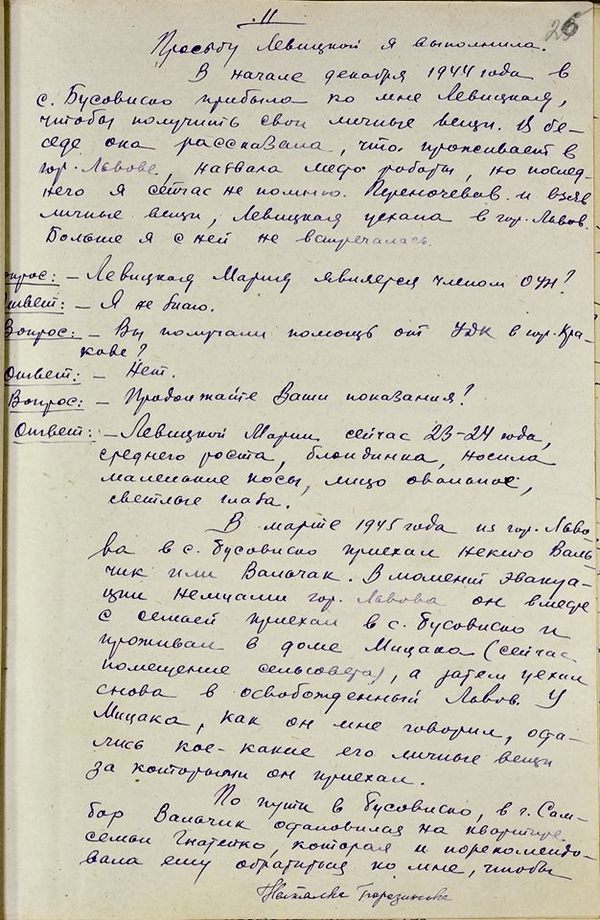 11
25
Просьбу Левицкой я выполнила.
В начале декабря 1944 года в
с. Бусовиско прибыла ко мне Левицкая,
чтобы получить свои личные вещи. В бе-
седе она рассказала, что проживает в
гор. Львове, назвала место работы, но послед-
него я сейчас не помню. Переночевав и взяв
личные вещи, Левицкая уехала в гор. Львов.
Больше я с ней не встречалась.
Вопрос: – Левицкая Мария является членом ОУН?
Ответ: – Я не знаю.
Вопрос: – Вы получали помощь от УДК в гор. Кра-
кове?
Ответ: – Нет.
Вопрос: – Продолжайте Ваши показания?
Ответ: – Левицкой Марии сейчас 23-24 года,
среднего роста, блондинка, носила
маленькие косы, лицо овальное,
светлые глаза.
В марте 1945 года из гор. Льво-
ва в с. Бусовиско приехал некто Валь-
чик или Вальчак. В момент эвакуа-
ции немцами гор. Львова он вместе
с семьей приехал в с. Бусовиско и
проживал в доме Мицака (сейчас
помещение сельсовета), а затем уехал
снова в освобожденный Львов. У
Мицака, как он мне говорил, оста-
лись кое-какие его личные вещи
за которыми он приехал.
По пути в Бусовиско, в г. Сам-
бор Вальчик остановился на квартире
семьи Гнатейко, которая и порекомендо-
вала ему обратиться ко мне, чтобы